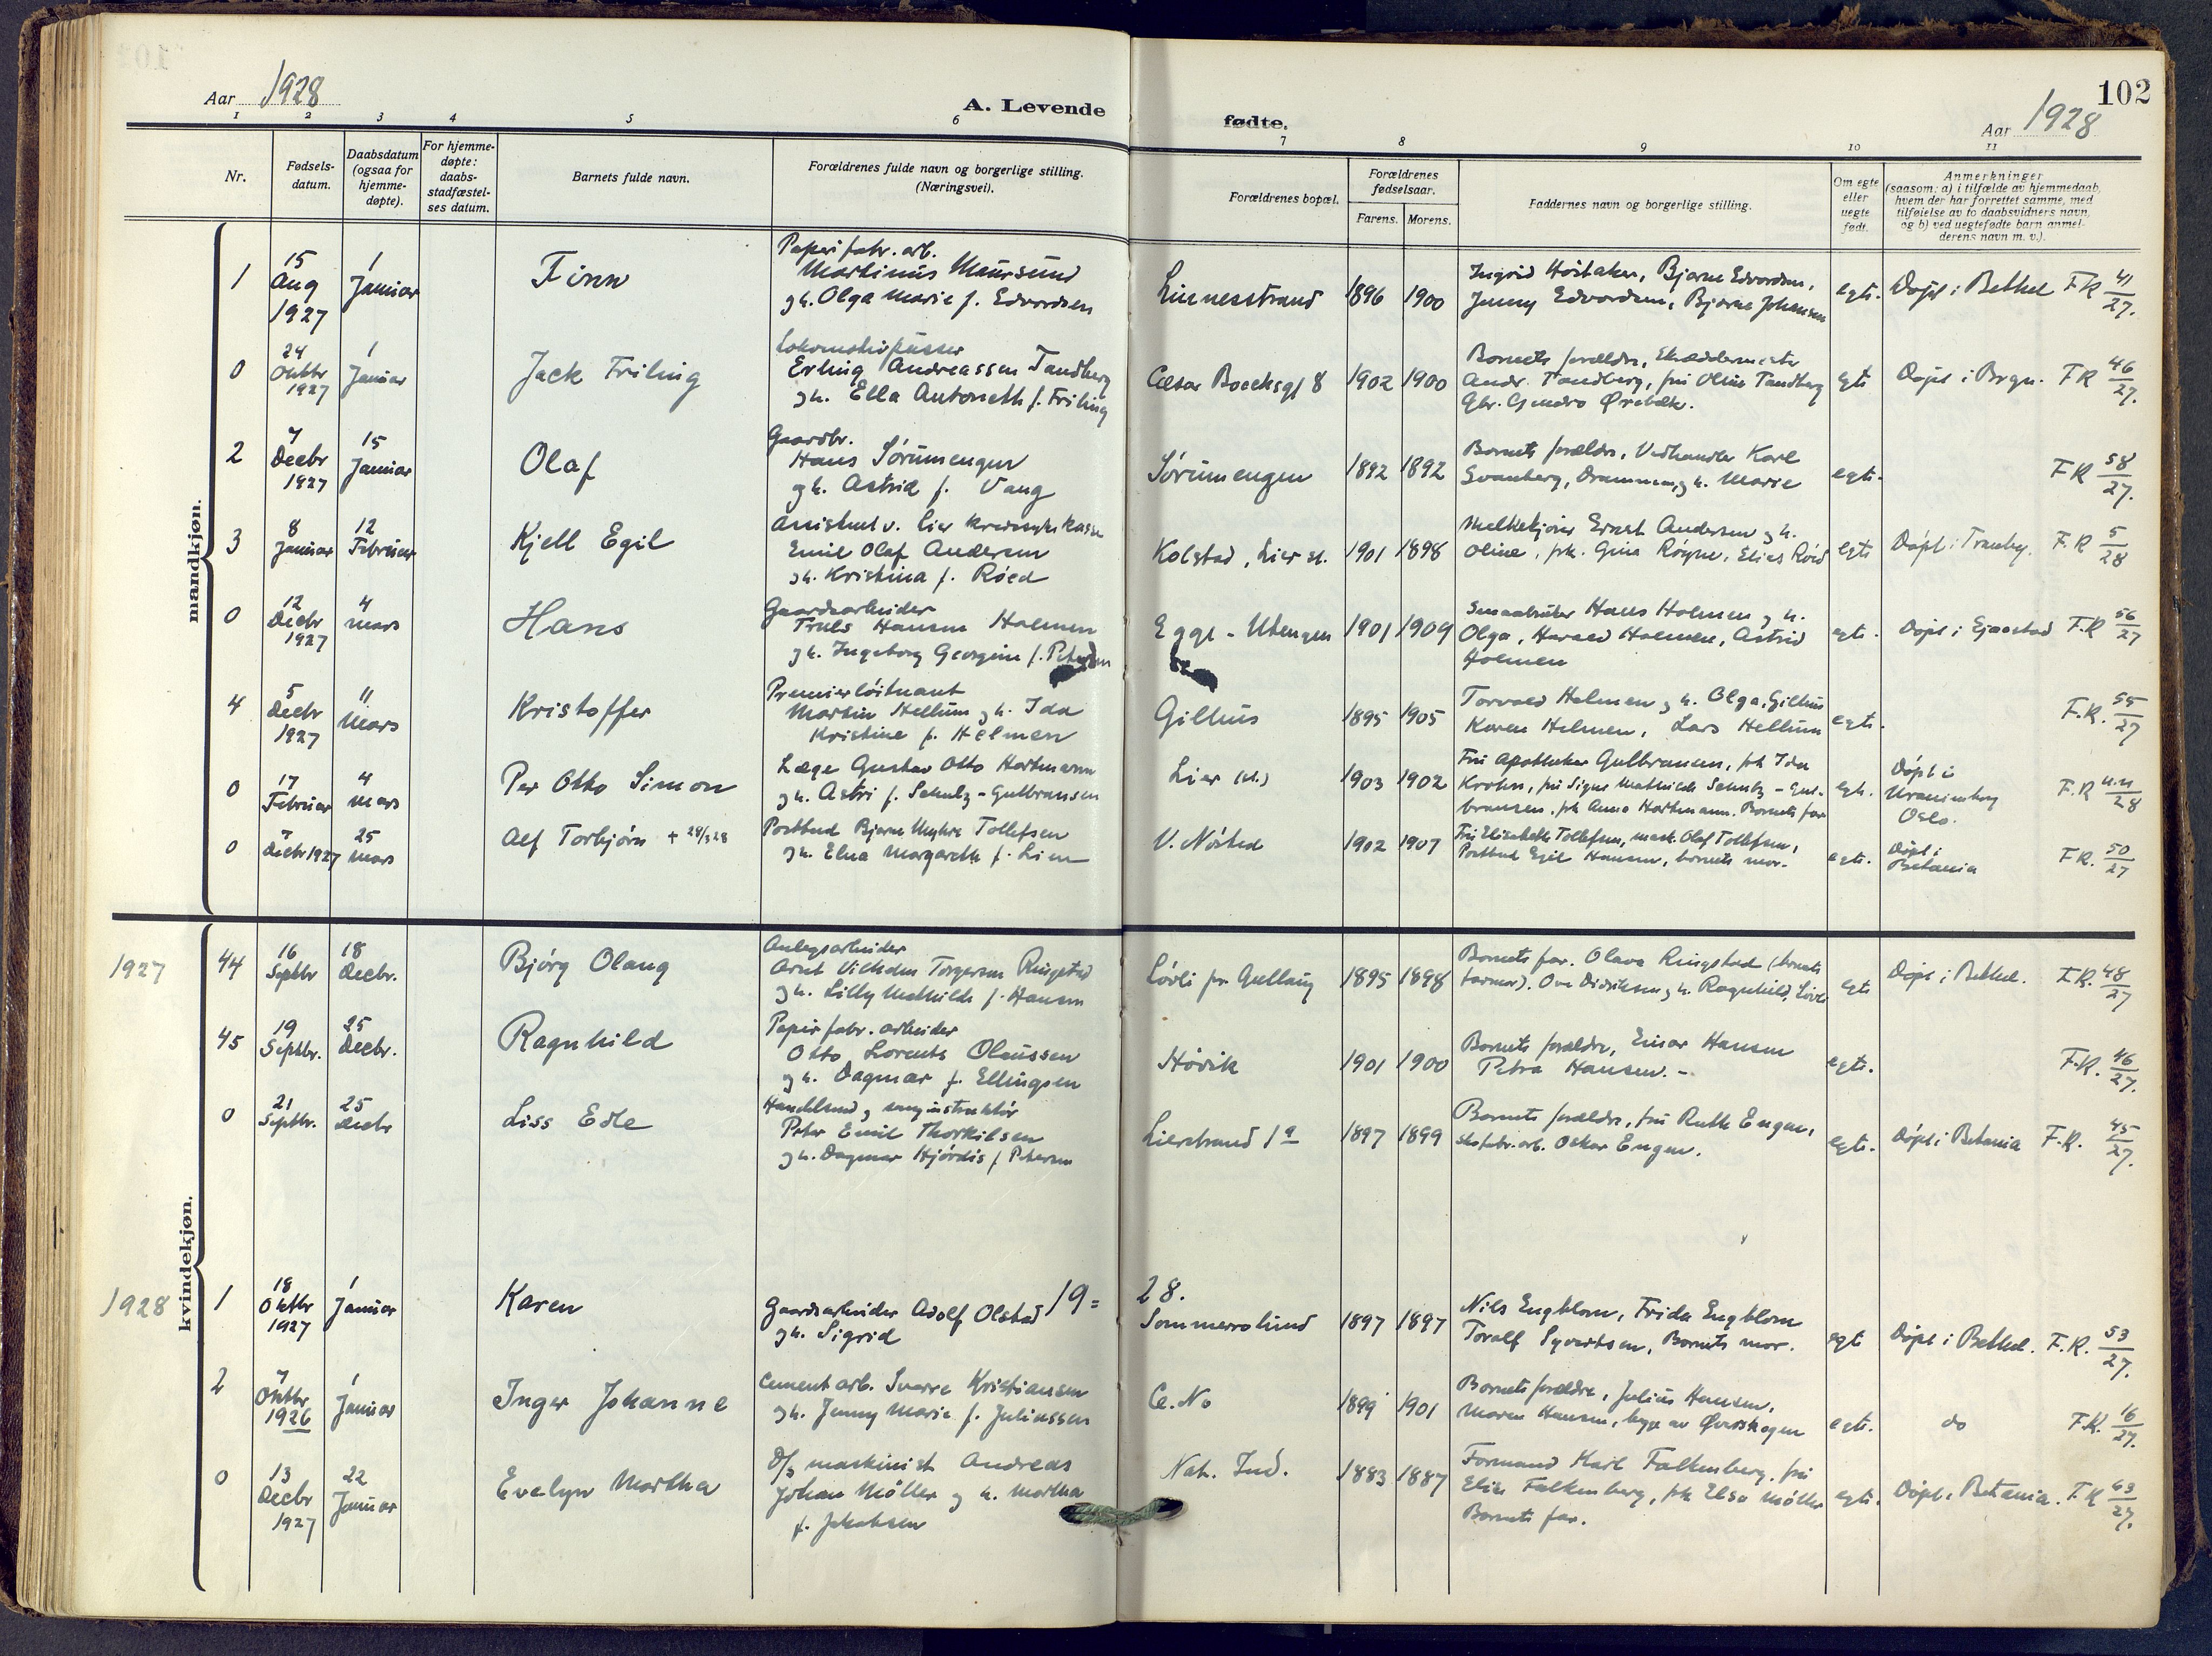 102
Aar 1928
A. Levende fødte.
Aar 1928
1 2 3 4 5 6 7 8 9 10 11
Nr.
Fødsels-
datum.
Daabsdatum
(ogsaa for
hjemme-
døpte).
For hjemme-
døpte:
daabs-
stadfæstel-
ses datum.
Barnets fulde navn.
Forældrenes fulde navn og borgerlige stilling.
(Næringsvei).
Forældrenes bopæl.
Forældrenes
fødselsaar.
Farens. Morens.
Faddernes navn og borgerlige stilling.
Om egte
eller
uegte
født.
Anmerkninger
(saasom: a) i tilfælde av hjemmedaab,
hvem der har forrettet samme, med
tilføielse av to daabsvidners navn,
og b) ved uegtefødte barn anmel-
derens navn m. v.).
mandkjøn.
1
15
Aug
1927
1
Januar
Finn
Papirfabr. arb.
Martinus Maursund
og h. Olga Marie f. Edvardsen
Linnesstrand
1896 1900
Ingrid Høitaker, Bjarne Edvardsen,
Jenny Edvardsen, Bjarne Johansen
egte.
Døpt i Bethel F.R 41/27.
0
24
Oktbr
1927
1
Januar
Jack Friling
Lokomotivpusser
Erling Andreassen Tandberg
og h. Ella Antonette f. Friling
Cæsar Boecksgt 8
1902 1900
Barnets forældre, Skræddermester
Andr. Tandberg, fru Oline Tandberg
egte
Døpt i Brgn. FR 46/27.
2
7
Decbr
1927
15
Januar
Olaf
Gaardbr.
Hans Sørumengen
og h. Astrid f. Vang
Sørumengen
1892 1892
Barnets forældre, Vedhandler Karl
Svanberg, Drammen, og h. Marie
egte.
FR 58/27.
3
8
Januar
12
Februar
Kjell Egil
Assistent v. Lier kredssykekasse
Emil Olaf Andersen
og h. Kristina f. Røed
Kolstad, Lier st.
1901 1898
Melkekjører Ernst Andersen og h.
Oline, frk. Gina Røgne, Elias Røed
egte
Døpt i Tranby. F.R 5/28
0
12
Decbr
1927
4
Mars
Hans
Gaardsarbeider
Truls Hansen Holmen
og h. Ingeborg Georgine f. Petersen
Egge - Utengen
1901 1909
Smaabruker Hans Holmen og h.
Olga, Harald Holmen, Astrid
Holmen
egte.
Døpt i Sjaastad F.R 56/27
4
5
Decbr
1927
11
Mars
Kristoffer
Premierløitnant
Martin Hellum og h. Ida
Kristine f. Helmen
Gilhus
1895 1905
Torvald Helmen og h. Olga, Gilhus
Karen Helmen, Lars Hellum
egte.
F.R. 55/27
0
17
Februar
4
Mars
Per Otto Simon
Læge Gustav Otto Hartmann
og h. Astri f. Schultz-Gulbransen
Lier (st.)
1903 1902
Fru Apotheker Gulbransen, frk Ida
Krohn, fru Signe Mathilde Schultz-Gul-
bransen, frk Anna Hartmann. Barnets far
egte.
Døpt i
Uranienborg
Oslo.
F.R u.n/28
0
7
Decbr 1927
25
Mars
Alf Torbjørn + 28/3 28
Postbud Bjarne Tollefsen
og h. Elna Margareth f. Lien
V. Nøsted
1902 1907
Fru Elisabeth Tollefsen, mask. Olaf Tollefsen,
Postbud Egil Hansen, barnets mor.
egte.
Døpt i
Betania
F.R. 50/27
kvindekjøn.
1927
44
16
Septbr
18
Decbr.
Bjørg Olaug
Anlegsarbeider
Arnt Vilhelm Torgersen Ringstad
og h. Lilly Mathilde f. Hansen
Løvli pr. Gullaug
1895 1898
Barnets far. Olava Ringstad (barnets
farmor). Ove Didriksen og h. Ragnhild, Løvli
egte
Døpt i Bethel. F.R. 48/27
45
19
Septbr.
25
Decbr.
Ragnhild
Papirfabr. arbeider
Otto Lorents Olaussen
og h. Dagmar f. Ellingsen
Høvik
1901 1900
Barnets forældre, Einar Hansen
Petra Hansen. -
egte.
F.R. 46/27.
0
21
Septbr.
25
Decbr
Liss Edle
Handelsmd og sanginstruktør
Peter Emil Thorkilsen
og h. Dagmar Hjørdis f. Petersen
Lierstrand 1a
1897 1899
Barnets forældre, fru Ruth Engen,
skofabr. arb. Oskar Engen.
egte.
Døpt i Betania F.R. 45/27.
1928
19= 28.
1
18
Oktbr
1927
1
Januar
Karen
Gaardsarbeider Adolf Olstad
og h. Sigrid
Sommerrolund
1897 1897
Nils Engblom, Frida Engblom
Toralf Syvertsen, Barnets mor.
egte
Døpt i Bethel. F.R. 53/27.
2
7
Oktbr
1926
1
Januar
Inger Johanne
Cementarb. Sverre Kristiansen
og h. Jenny Marie f. Juliussen
Ce. No
1899 1901
Barnets forældre, Julius Hansen,
Maren Hansen, begge av Øverskogen
egte.
do F.R. 16/27.
0
13
Decbr
1927
22
Januar
Evelyn Martha
D/s maskinist Andreas
Johan Møller og h. Martha
f. Jakobsen
Nat. Ind.
1883 1887
Formand Karl Falkenberg, fru
Elise Falkenberg, frk Elsa Møller
Barnets far.
egte.
Døpt i Betania. F.R 63/27.